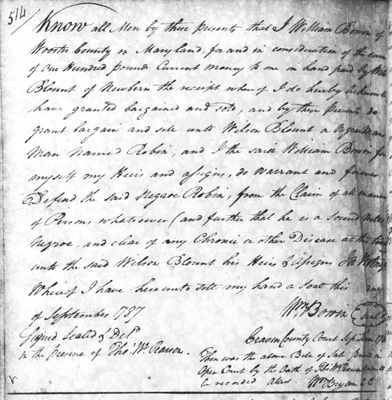 514
Know all Men by these presents that I William Bown of
County in Maryland, for and in consideration of the sum
of One Hundred pounds Current money to me in hand paid by
Blount of Newbern the receipt whereof I do hereby acknow
have granted bargained and sold, and by these Presents do
grant bargain and sell unto Wilson Blount a Negro
Man Named Robin, and I the said William Bown for
myself my Heirs and assigns, do warrant and forever
Defend the said Negroe Robin, from the Claim of all manner
of Persons whatsoever (and further that he is a Sound
Negroe, and clear of any Chronic or other Disease at the
unto the said Wilson Blount his Heirs & Assigns
Whereof I have hereunto sett my hand & Seal this
of September 1787
Wm Bown Seal
Signed Sealed & Deld
in the Presence of Thos. Wm. Pearson.
Craven County Court Sep
Then was the above Bill of Sale proved in
Open Court by the Oath of Thos Wm Pearson
be recorded Attest
Wm Bryan CC